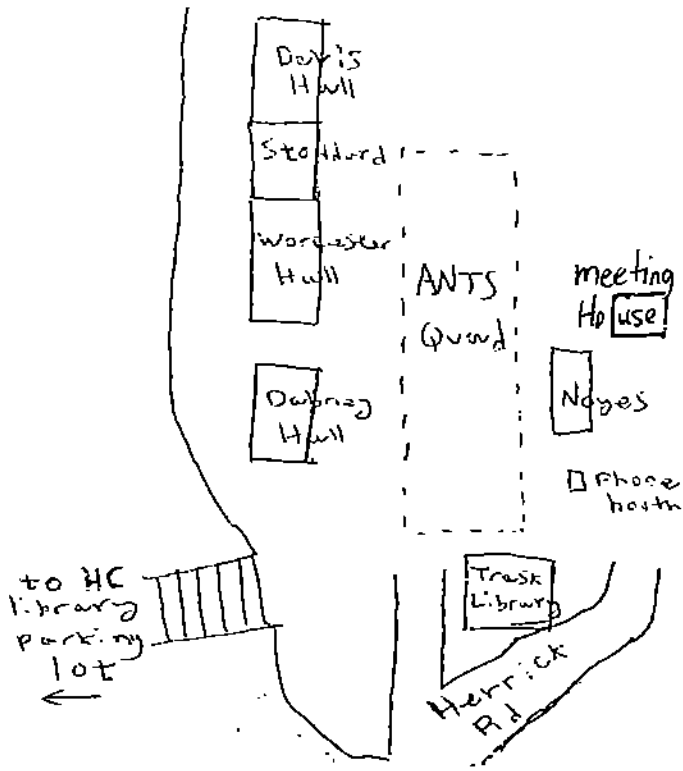 Davis
Hall
Stoddard
Worcester
Hall
ANTS
Quad
meeting
House
Dabney
Hall
Noyes
Phone
booth
to HC
library
parking
lot
Trask
Library
Herrick
Rd